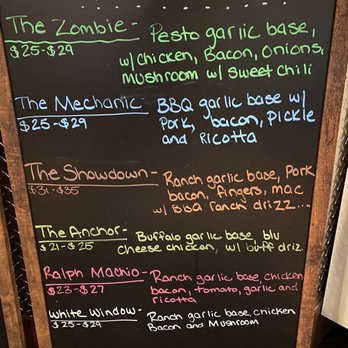 The Zombie - Pesto garlic base,
$25-$29 w/chicken, Bacon, onions,
mushroom w/ sweet chili
The Mechanic BBQ garlic base w/
$25-$29 Pork, bacon, Pickle
and Ricotta
The Showdown - Ranch garlic base, Pork
$31-$35 bacon, fingers, mac
w/ BBQ ranch drizz...
The Anchor - Buffalo garlic base, blu
$21-$25 cheese chicken, w/ buff driz.
Ralph Machio - Ranch garlic base, chicken
$23-$27 bacon, tomato, garlic and
ricotta
White Window - Ranch garlic base, chicken
$25-$29 Bacon and Mushroom